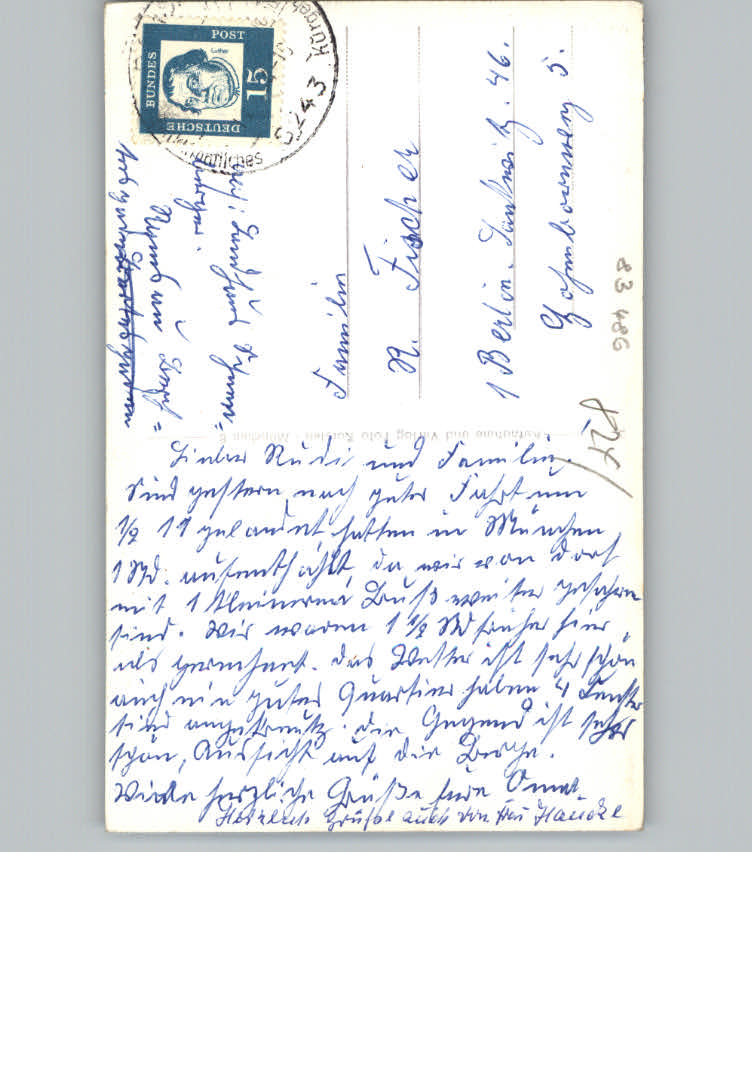 DEUTSCHE
BUNDES
POST
15
Luther
8243
Familie
R. Fischer
1 Berlin. Lankwitz. 46.
5.
83 486
Aufnahme und Verlag Foto
München 8
Lieber Rudi und Familie.
Sind gestern nach guter Fahrt um
1/2 11 gelandet hatten in München
1 Std. aufenthahlt da wir von dort
mit 1 kleineren Buß weiter gefahren
sind. Wir waren 1 1/2 Std früher hier
als gerechnet. das Wetter ist sehr schön
auch ein gutes Quartier haben 4 Fenster
sind angekreutz. die Gegend ist sehr
schön, Aussicht auf die Berge.
Viele herzliche Grüße Eure Oma.
Herzliche Grüße auch von Frau Hancke